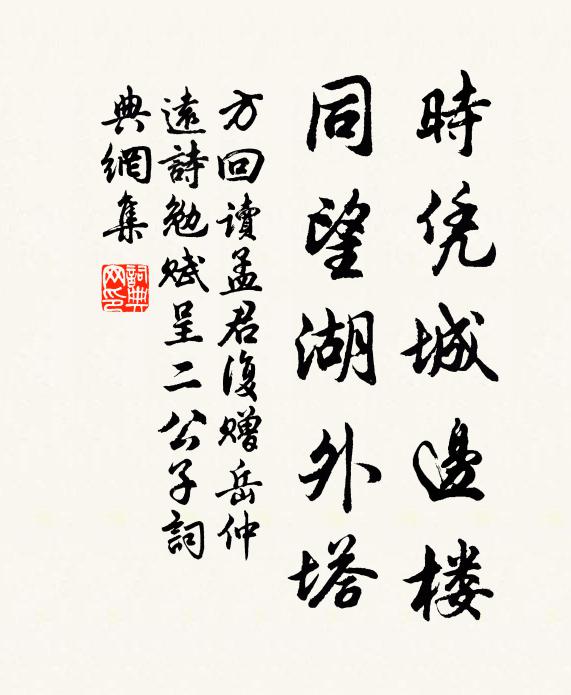 時凭城邊楼
同望湖外塔
方回讀孟君復赠岳仲
遠詩勉赋呈二公子詞
典網集
詞典网印